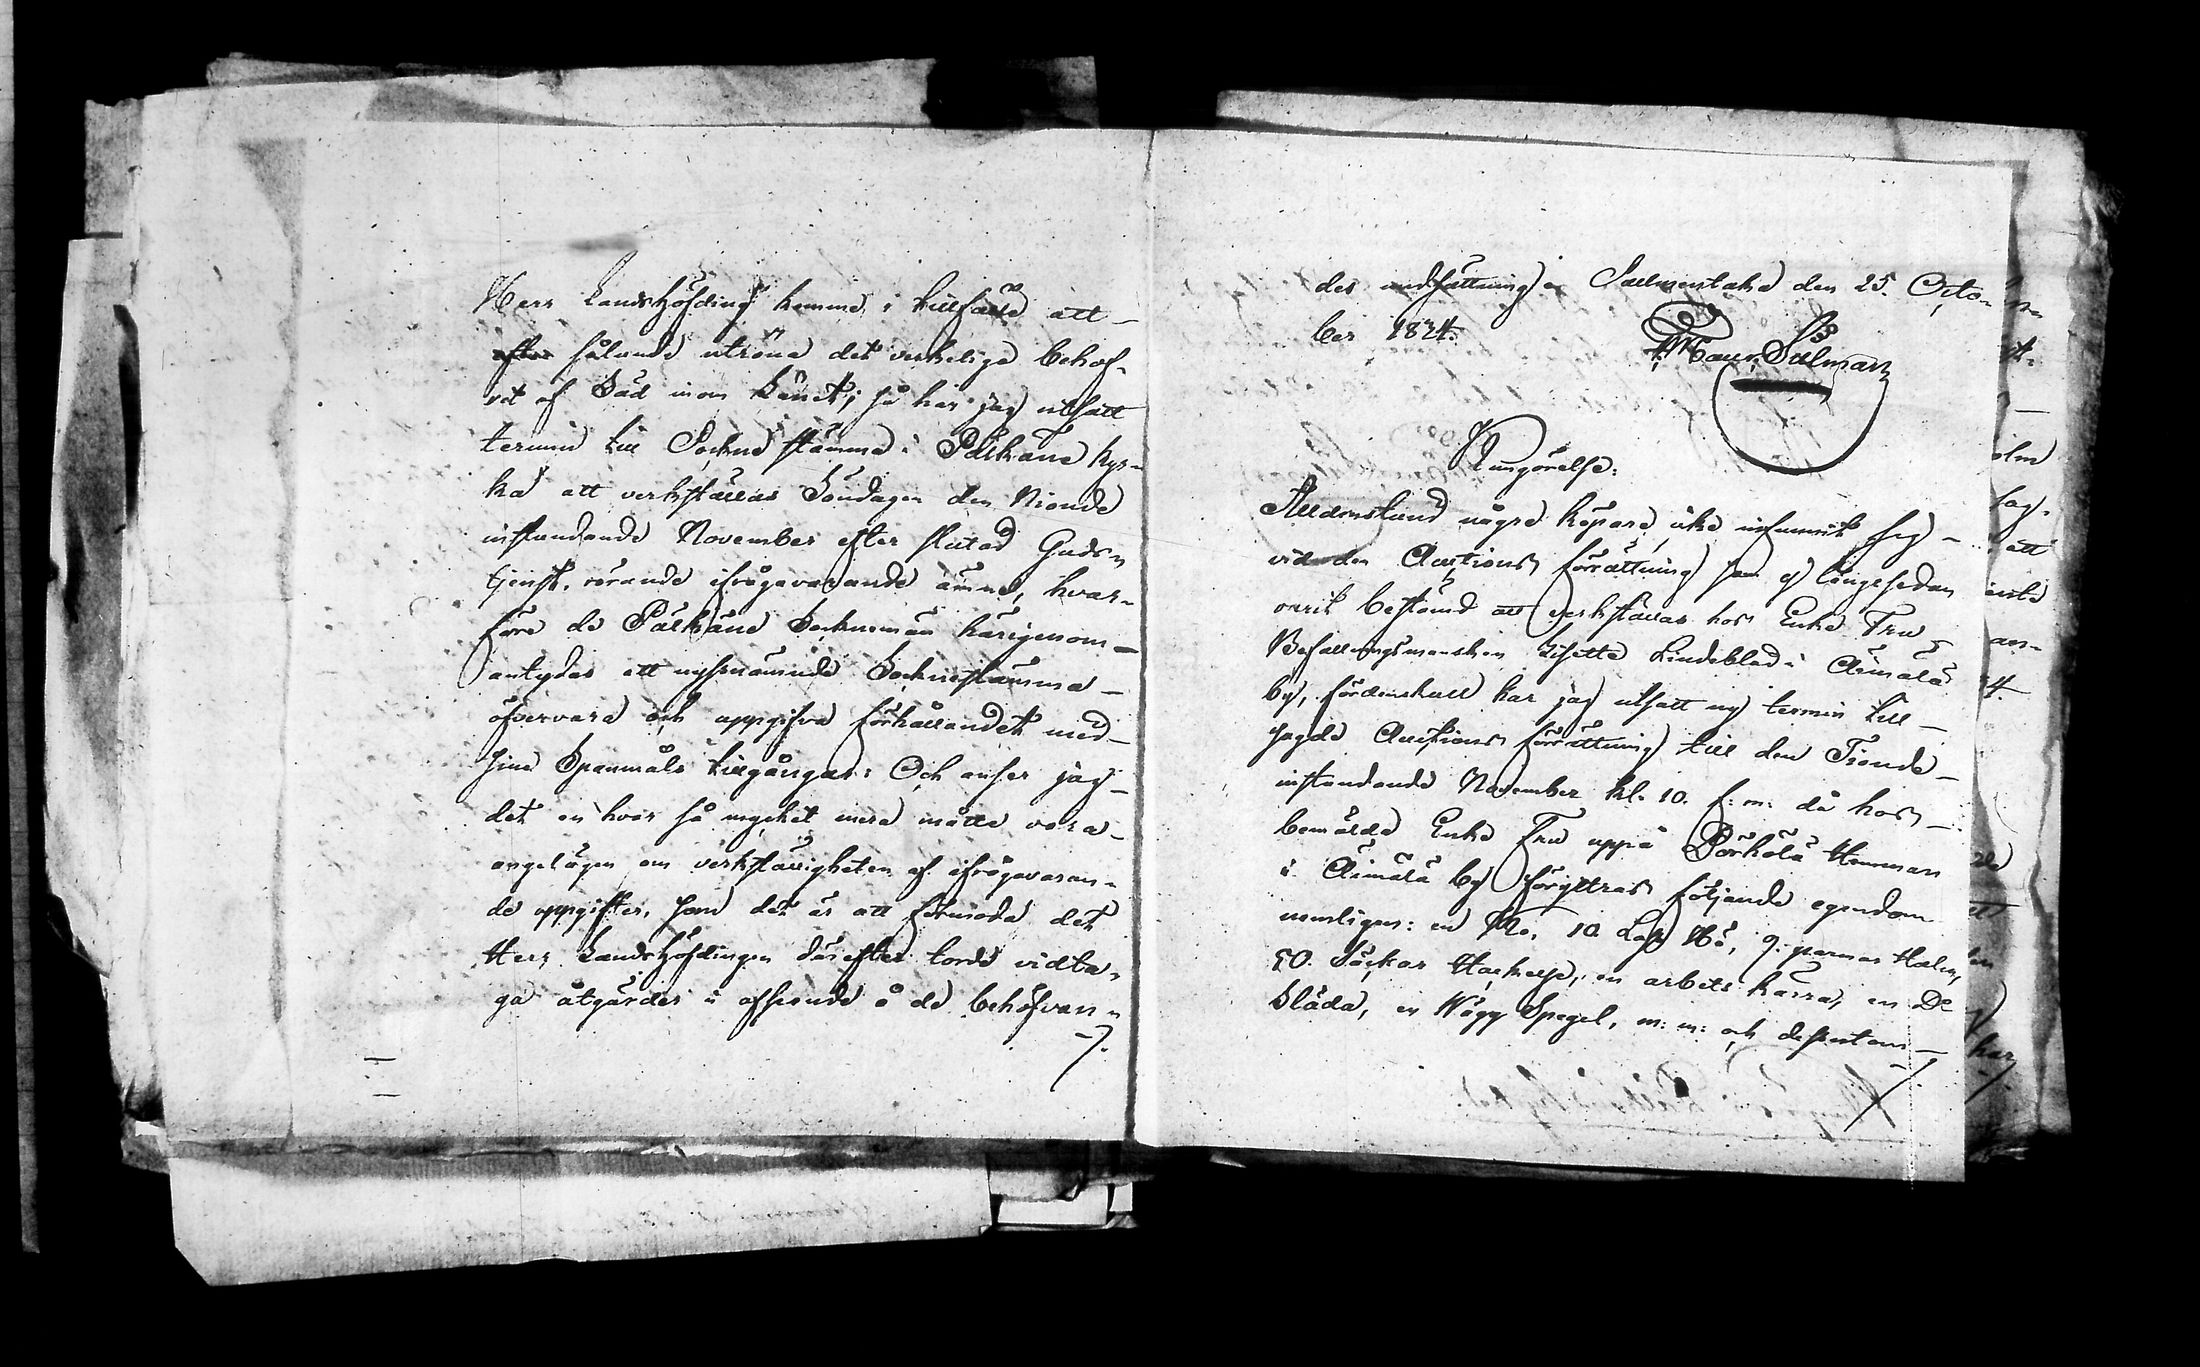 Herr Landshöfding komma i tillfälle att
efter sålunda utröna det verkeliga behof-
vet af Säd inom Länet; så har jag utsatt
termin till Sockne stämma i Pälkäne kyr-
ka att verkställas Söndagen den Nionde
instundande November efter slutad Guds-
tjenst, rörande ifrågavarande ämne, hvar-
före de Pälkäne Sockneman härigenom
antydas att nyssnämnde Socknestämma
öfvervara och uppgifva förhållandet med
sina Spanmåls tillgångar: Och anser jag
det en hvar så mycket mera måtte vara
angelägen om verkställigheten af ifrågavaran-
de uppgifter, som det är att förmoda det
Herr Landshöfdingen därefter torde vidta-
ga åtgärder i afseende å de behöfvan-
des undsättning. Salmentaka den 25. Octo-
ber 1824.
Salman
Kungörelse:
Alldenstund några köpare icke infunnit sig
vid den Auctions förrättning som ej längesedan
varit bestämd att verkställas hos Enke Fru
Befallningsmanskan Lisette Lindeblad i Äimälä
by, fördenskull har jag utsatt ny termin till
sagde Auctions förrättning till den Tionde
instundande November kl. 10. f: m: då hos
bemälde Enke Fru uppå Pörhölä Hemman
i Äimälä by föryttras följande egendom
nemligen: en Ko, 10. Lass Hö, 9. parmar Halm,
50. Säckar Hackelse, en arbets kärra, en D:o
Släda, en Vägg Spegel, m: m: och dessutom